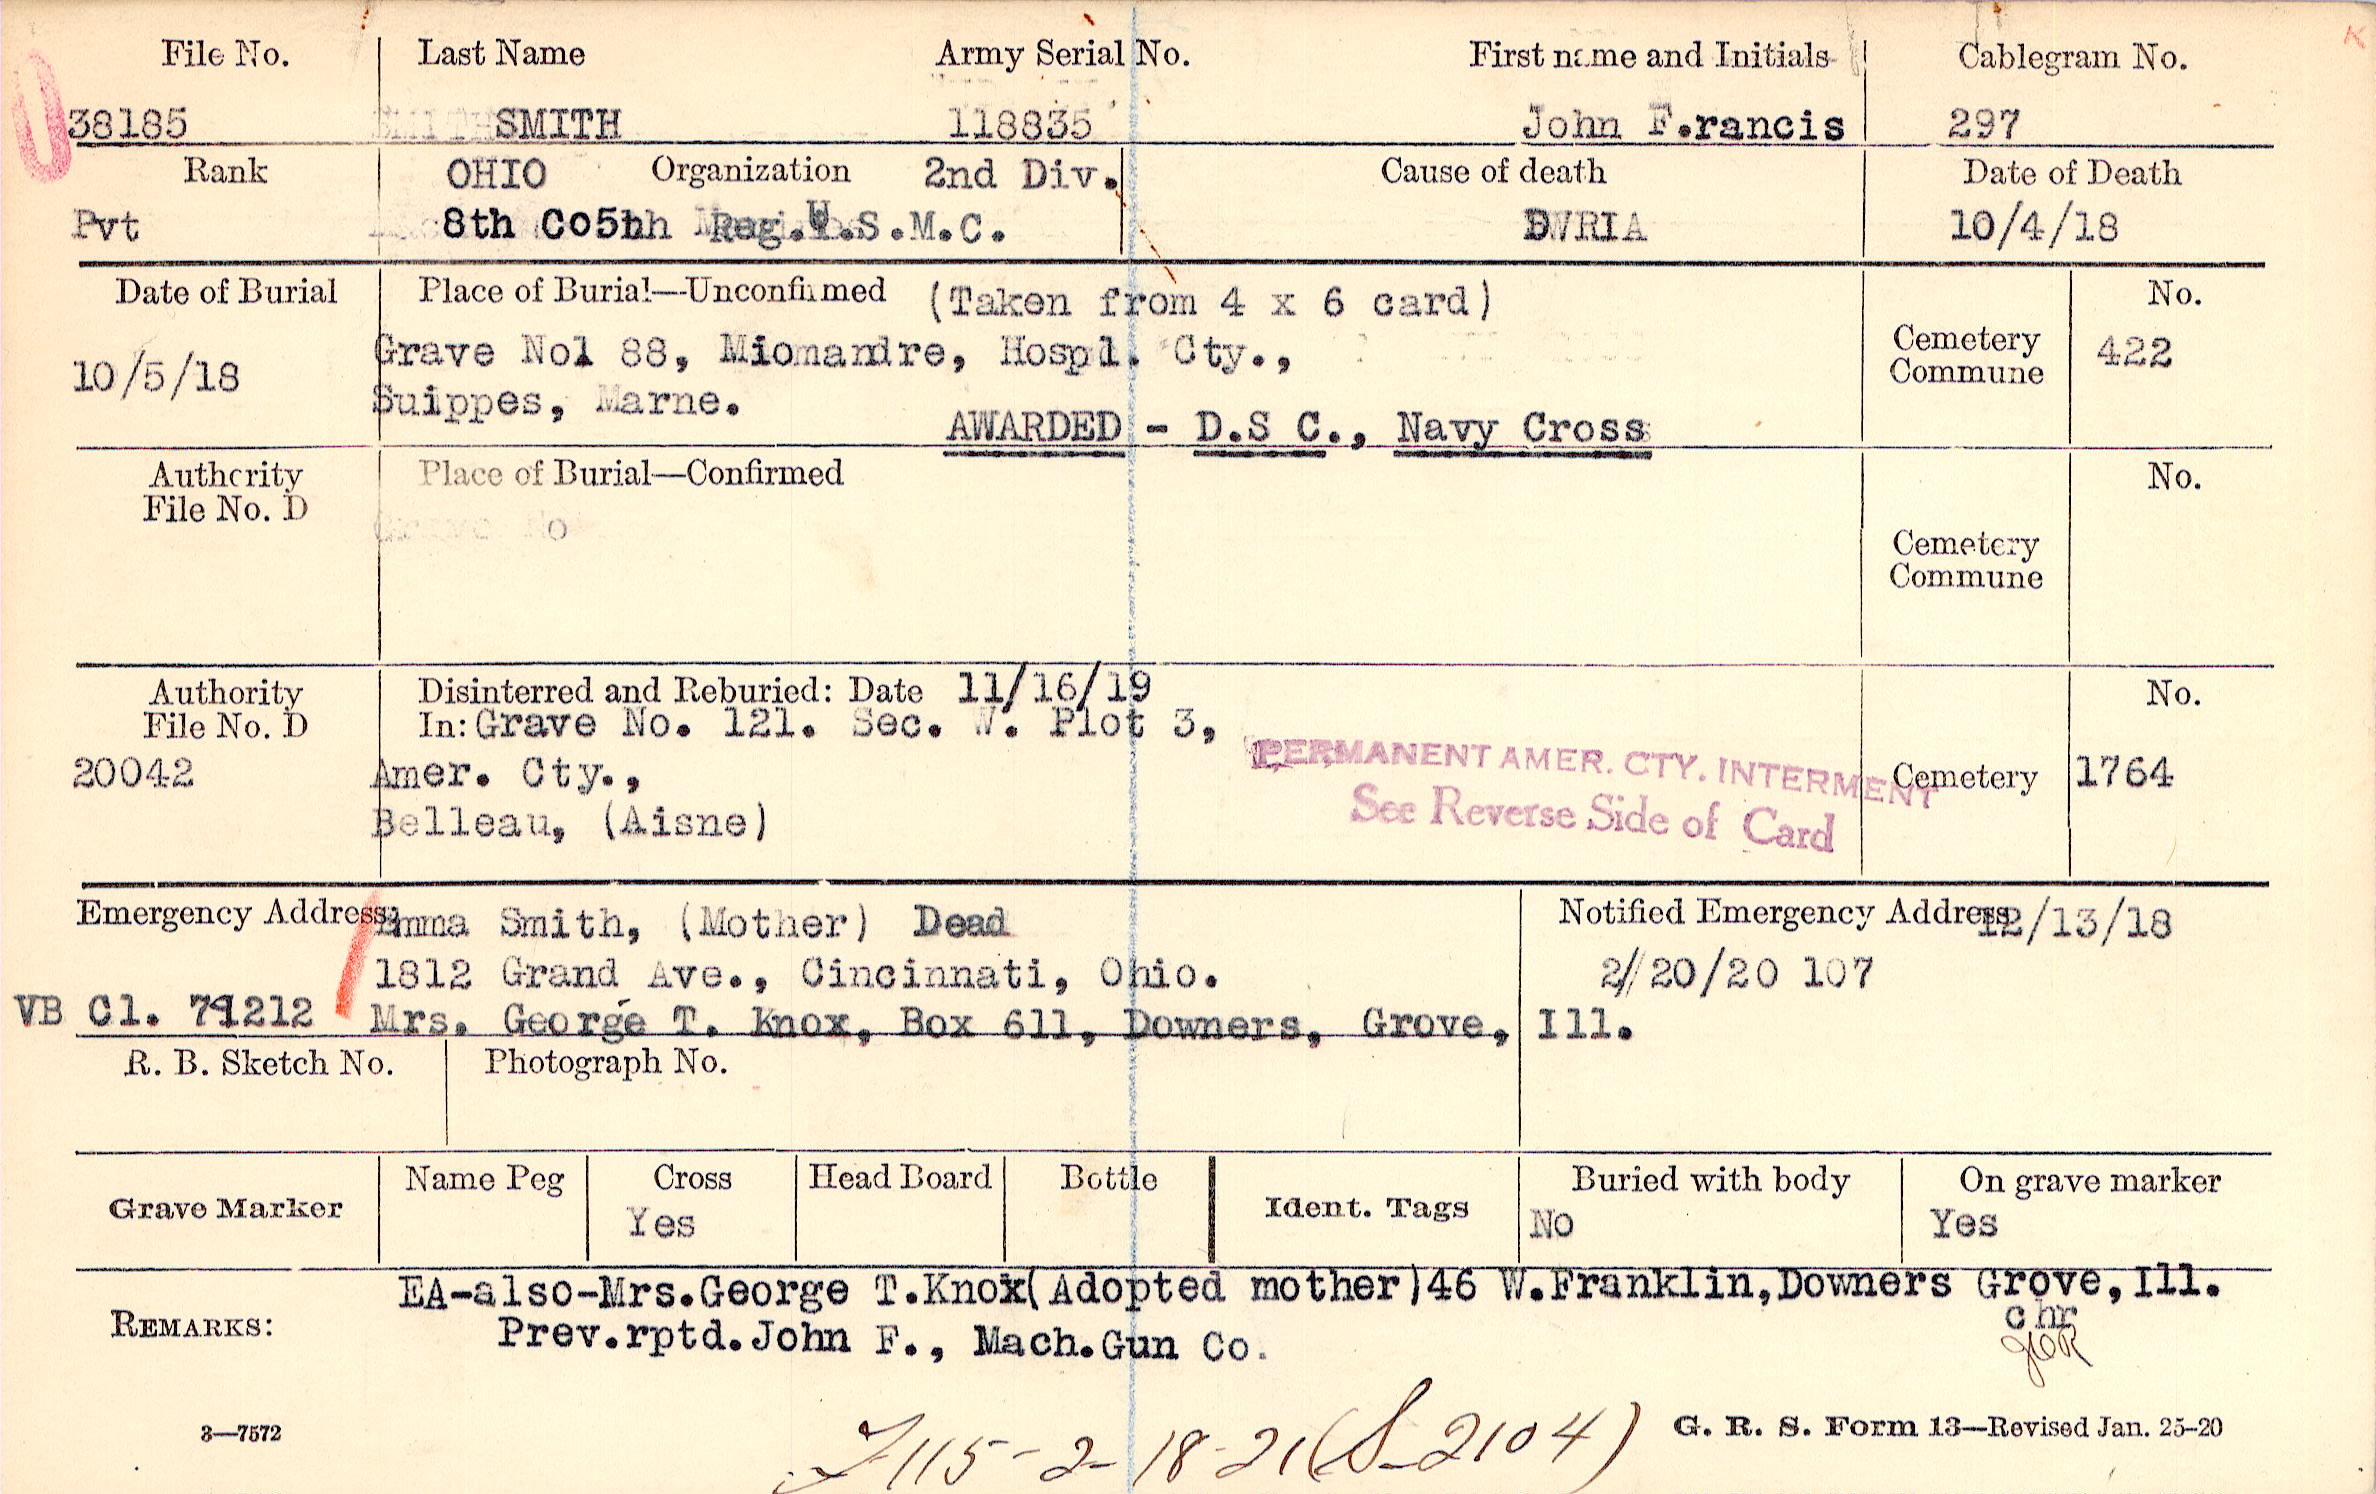 File No. Last Name Army Serial No. First name and Initials Cablegram No.
38185 SMITH 118835 John F.rancis 297
Rank OHIO Organization 2nd Div. Cause of death Date of Death
Pvt 8th Co5th Reg.U.S.M.C. DWRIA 10/4/18
Date of Burial Place of Burial—Unconfirmed (Taken from 4 x 6 card) No.
10/5/18 Grave No1 88, Miomandre, Hospl. Cty., Cemetery Commune 422
Suippes, Marne.
AWARDED - D.S C., Navy Cross
Authority File No. D Place of Burial—Confirmed No.
Grave No
Cemetery Commune
Authority File No. D Disinterred and Reburied: Date 11/16/19 No.
In: Grave No. 121. Sec. W. Plot 3,
20042 Amer. Cty., Cemetery 1764
Belleau, (Aisne)
PERMANENT AMER. CTY. INTERMENT
See Reverse Side of Card
Emergency Address: Emma Smith, (Mother) Dead Notified Emergency Address 12/13/18
1812 Grand Ave., Cincinnati, Ohio. 2/20/20 107
VB Cl. 71212 Mrs. George T. Knox, Box 611, Downers, Grove, Ill.
R. B. Sketch No. Photograph No.
Grave Marker Name Peg Cross Head Board Bottle Ident. Tags Buried with body On grave marker
Yes No Yes
REMARKS: EA-also-Mrs.George T.Knox(Adopted mother)46 W.Franklin,Downers Grove,Ill.
chr
Prev.rptd.John F., Mach.Gun Co.
3—7572 115-2-18-21(S-2104) G. R. S. Form 13—Revised Jan. 25-20
K